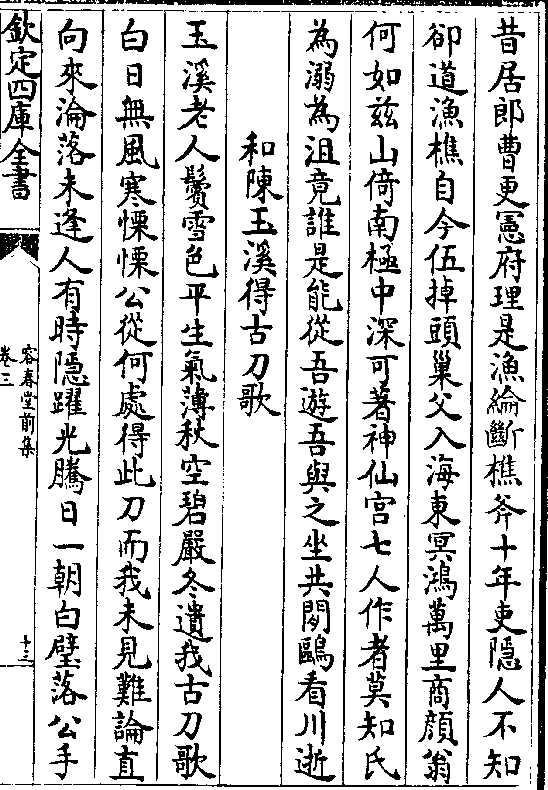 昔居郎曹更憲府理是漁綸斷樵斧十年吏隱人不知
卻道漁樵自今伍掉頭巢父入海東冥鴻萬里商顔翁
何如兹山倚南極中深可著神仙宫七人作者莫知氏
為溺為沮竟誰是能從吾遊吾與之坐共閑鷗看川逝
和陳玉溪得古刀歌
玉溪老人鬢雪色平生氣薄秋空碧嚴冬遺我古刀歌
白日無風寒慄慄公從何處得此刀而我未見難論直
向來淪落未逢人有時隱躍光騰日一朝白璧落公手
欽定四庫全書
容春堂前集
卷三
十三